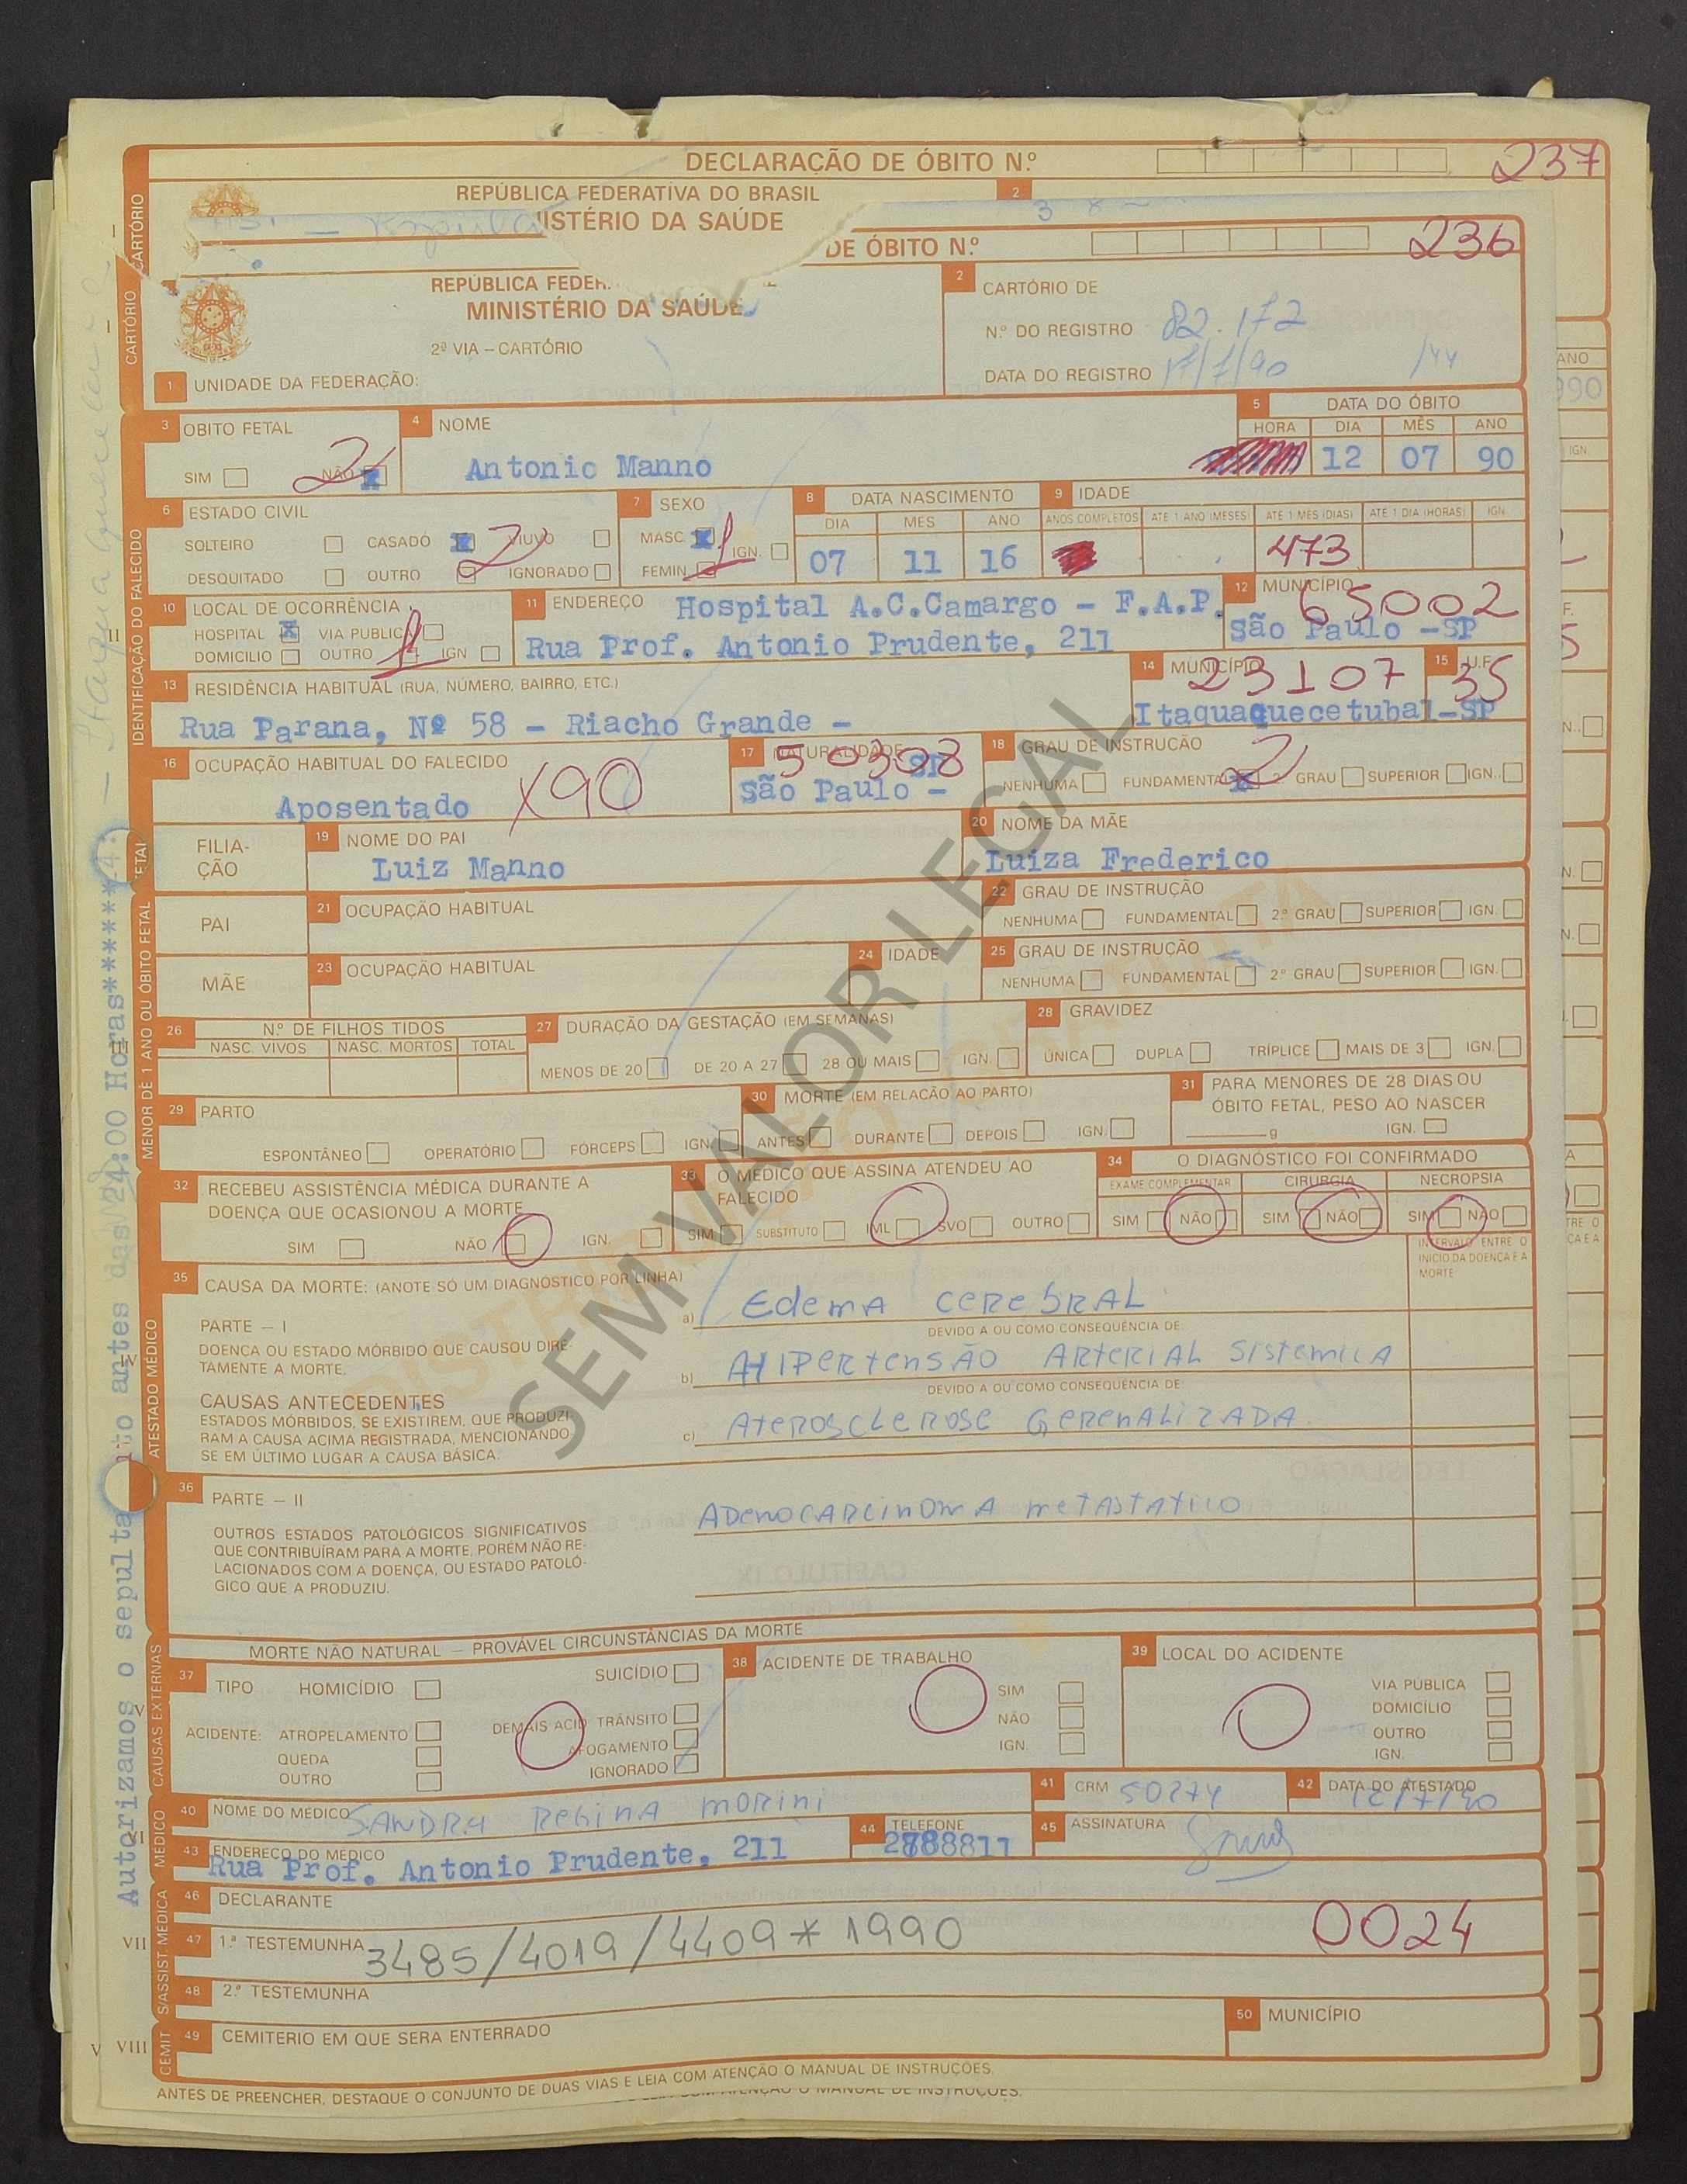 DECLARAÇÃO DE ÓBITO N.º
237
REPÚBLICA FEDERATIVA DO BRASIL
2
ISTÉRIO DA SAÚDE
DE ÓBITO N.º
236
CARTÓRIO
CARTÓRIO
REPÚBLICA FEDER
MINISTÉRIO DA SAÚDE
2ª VIA – CARTÓRIO
1 UNIDADE DA FEDERAÇÃO:
2 CARTÓRIO DE
N.º DO REGISTRO 82.172
DATA DO REGISTRO 17/7/90
3 OBITO FETAL
SIM NÃO X 2
4 NOME
Antonio Manno
5 DATA DO ÓBITO
HORA DIA MÊS ANO
12 07 90
IDENTIFICAÇÃO DO FALECIDO
6 ESTADO CIVIL
SOLTEIRO CASADO X VIUVO
DESQUITADO OUTRO IGNORADO
2
7 SEXO
MASC. X IGN.
FEMIN. 1
8 DATA NASCIMENTO
DIA MÊS ANO
07 11 16
9 IDADE
ANOS COMPLETOS ATÉ 1 ANO (MESES) ATÉ 1 MES (DIAS) ATÉ 1 DIA (HORAS) IGN.
473
10 LOCAL DE OCORRÊNCIA
HOSPITAL X VIA PUBLICA
DOMICILIO OUTRO IGN
1
11 ENDEREÇO Hospital A.C.Camargo – F.A.P.
Rua Prof. Antonio Prudente, 211
12 MUNICÍPIO
65002
São Paulo –SP
13 RESIDÊNCIA HABITUAL (RUA, NÚMERO, BAIRRO, ETC.)
Rua Parana, Nº 58 – Riacho Grande –
14 MUNICÍPIO
23107
15 U.F.
35
Itaquaquecetubal–SP
16 OCUPAÇÃO HABITUAL DO FALECIDO
Aposentado X90
17 NATURALIDADE
50308
São Paulo – SP
18 GRAU DE INSTRUÇÃO
NENHUMA FUNDAMENTAL X 2 GRAU SUPERIOR IGN.
FILIA-
ÇÃO
19 NOME DO PAI
Luiz Manno
20 NOME DA MÃE
Luiza Frederico
MENOR DE 1 ANO OU ÓBITO FETAL
PAI
21 OCUPAÇÃO HABITUAL
22 GRAU DE INSTRUÇÃO
NENHUMA FUNDAMENTAL 2.º GRAU SUPERIOR IGN.
MÃE
23 OCUPAÇÃO HABITUAL
24 IDADE
25 GRAU DE INSTRUÇÃO
NENHUMA FUNDAMENTAL 2.º GRAU SUPERIOR IGN.
26 N.º DE FILHOS TIDOS
NASC. VIVOS NASC. MORTOS TOTAL
27 DURAÇÃO DA GESTAÇÃO (EM SEMANAS)
MENOS DE 20 DE 20 A 27 28 OU MAIS IGN.
28 GRAVIDEZ
ÚNICA DUPLA TRÍPLICE MAIS DE 3 IGN.
29 PARTO
ESPONTÂNEO OPERATÓRIO FÓRCEPS IGN.
30 MORTE (EM RELAÇÃO AO PARTO)
ANTES DURANTE DEPOIS IGN.
31 PARA MENORES DE 28 DIAS OU
ÓBITO FETAL, PESO AO NASCER
g IGN.
ATESTADO MÉDICO
32 RECEBEU ASSISTÊNCIA MÉDICA DURANTE A
DOENÇA QUE OCASIONOU A MORTE
SIM NÃO IGN.
33 O MÉDICO QUE ASSINA ATENDEU AO
FALECIDO
SIM SUBSTITUTO IML SVO OUTRO
34 O DIAGNÓSTICO FOI CONFIRMADO
EXAME COMPLEMENTAR CIRURGIA NECROPSIA
SIM NÃO SIM NÃO SIM NÃO
35 CAUSA DA MORTE: (ANOTE SÓ UM DIAGNÓSTICO POR LINHA)
INTERVALO ENTRE O
INICIO DA DOENÇA E A
MORTE
PARTE – I
DOENÇA OU ESTADO MÓRBIDO QUE CAUSOU DIRE-
TAMENTE A MORTE.
a) Edema cerebral
DEVIDO A OU COMO CONSEQUÊNCIA DE:
b) HIPERtensÃO ARteriAL Sistemica
DEVIDO A OU COMO CONSEQUÊNCIA DE:
CAUSAS ANTECEDENTES
ESTADOS MÓRBIDOS, SE EXISTIREM, QUE PRODUZI-
RAM A CAUSA ACIMA REGISTRADA, MENCIONANDO-
SE EM ÚLTIMO LUGAR A CAUSA BÁSICA.
c) AteROSCLeROSe GeRenALizADA
36 PARTE – II
OUTROS ESTADOS PATOLÓGICOS SIGNIFICATIVOS
QUE CONTRIBUÍRAM PARA A MORTE, PORÉM NÃO RE-
LACIONADOS COM A DOENÇA, OU ESTADO PATOLÓ-
GICO QUE A PRODUZIU.
ADenocARcinomA metAStAtico
CAUSAS EXTERNAS
MORTE NÃO NATURAL – PROVÁVEL CIRCUNSTÂNCIAS DA MORTE
37 TIPO HOMICÍDIO SUICÍDIO
ACIDENTE: ATROPELAMENTO DEMAIS ACID. TRÂNSITO
QUEDA AFOGAMENTO
OUTRO IGNORADO
38 ACIDENTE DE TRABALHO
SIM
NÃO
IGN.
39 LOCAL DO ACIDENTE
VIA PÚBLICA
DOMICÍLIO
OUTRO
IGN.
MÉDICO
40 NOME DO MÉDICO SANDRA ReginA MORini
41 CRM 50274
42 DATA DO ATESTADO
12/7/90
43 ENDEREÇO DO MÉDICO
Rua Prof. Antonio Prudente, 211
44 TELEFONE
2788811
45 ASSINATURA
S/ASSIST. MEDICA
46 DECLARANTE
0024
47 1.ª TESTEMUNHA
3485/4019/4409*1990
48 2.ª TESTEMUNHA
CEMIT
49 CEMITERIO EM QUE SERA ENTERRADO
50 MUNICÍPIO
VIII
ANTES DE PREENCHER, DESTAQUE O CONJUNTO DE DUAS VIAS E LEIA COM ATENÇÃO O MANUAL DE INSTRUÇÕES.
Autorizamos o sepulta nto antes das 24:00 Horas*******
SEM VALOR LEGAL